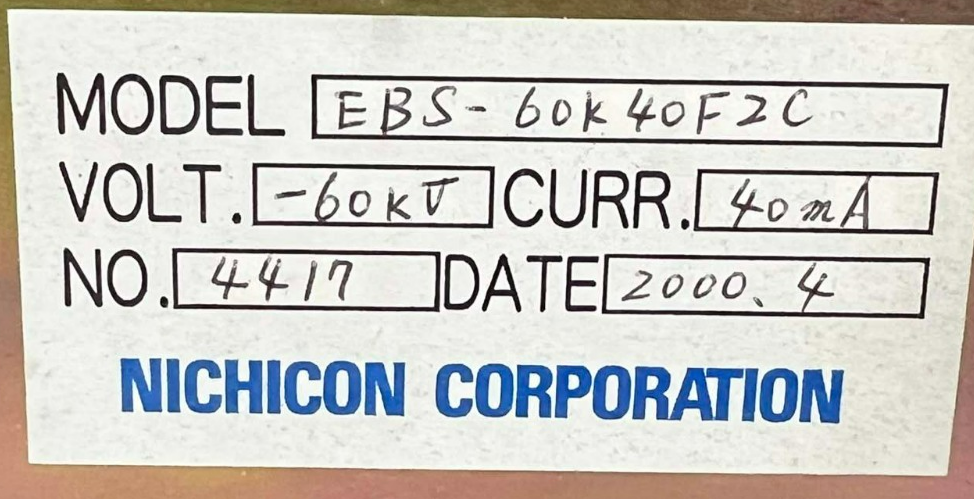 MODEL EBS-60K40F2C
VOLT. -60KV CURR. 40mA
NO. 4417 DATE 2000.4
NICHICON CORPORATION